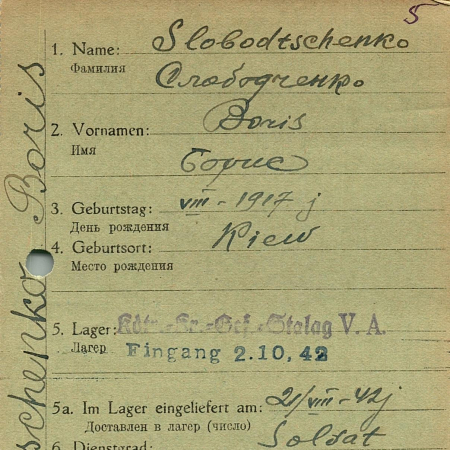 5
1. Name: Slobodtschenko
Фамилия Слабодченко
2. Vornamen: Boris
Имя
Борис
3. Geburtstag: VIII - 1917 j
День рождения
4. Geburtsort: Kiew
Место рождения
5. Lager: Kdtr.-Kr.-Gef.-Stalag V. A.
Лагер Eingang 2.10, 42
5a. Im Lager eingeliefert am: 21/VIII - 42 j
Доставлен в лагер (число)
6. Dienstgrad: Soldat
schenko Boris